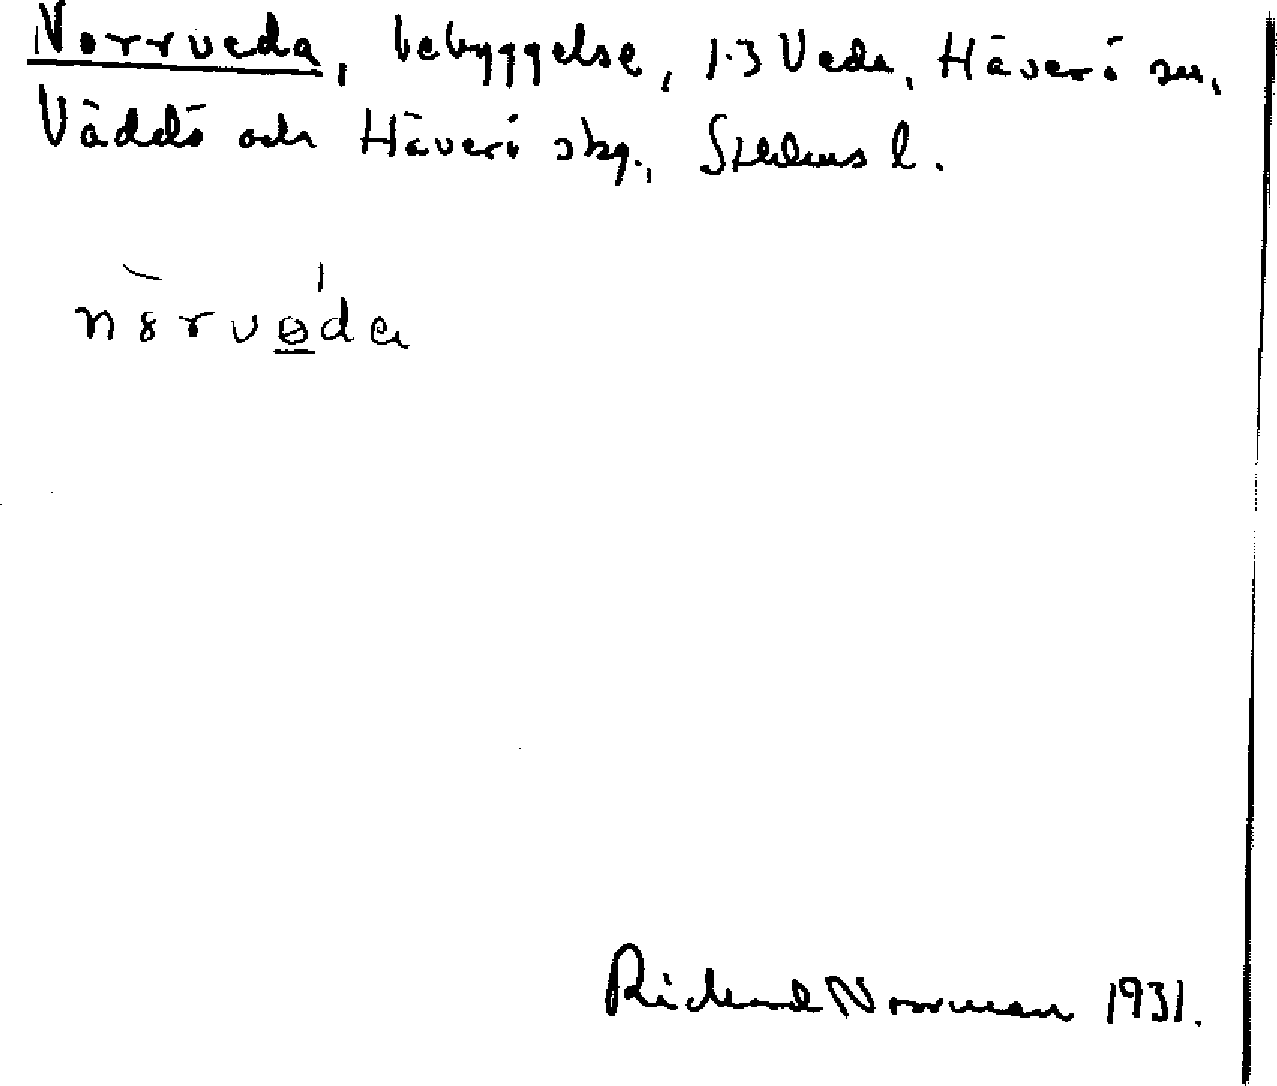 Norrveda, bebyggelse, 1-3 Veda, Häverö sn,
Väddö och Häverö skg., Sthlms l.
nȯrveda
Richard Norrman 1931.